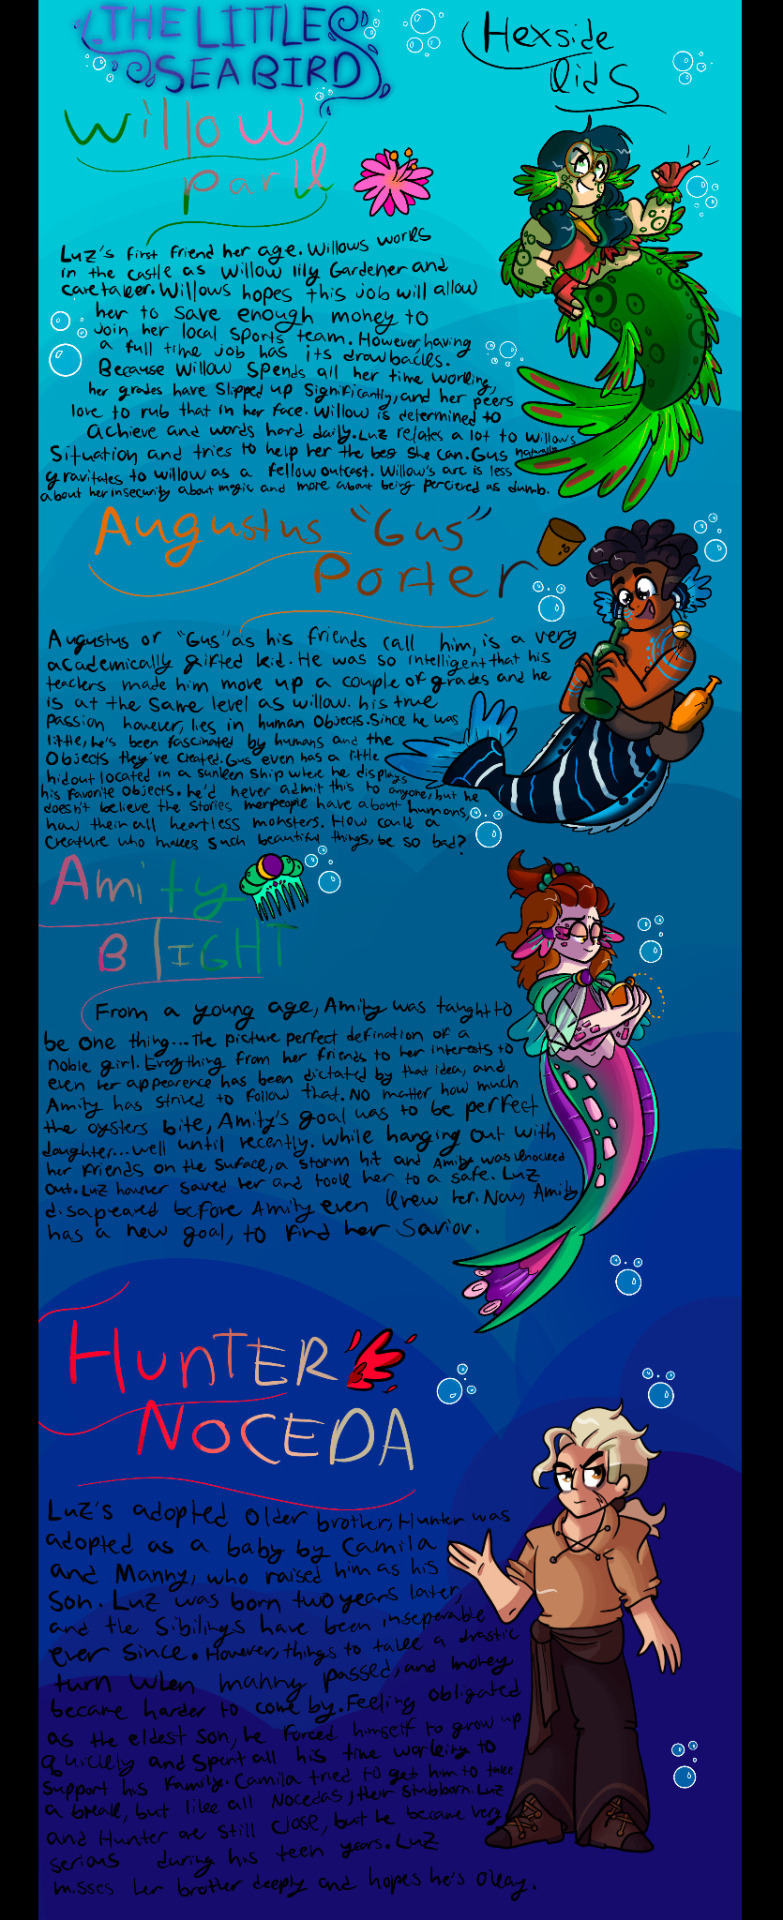 THE LITTLE
SEA BIRD
Hexside
Kids
Willow
Park
Luz's first friend her age. Willows works
in the castle as Willow lily Gardener and
caretaker. Willows hopes this job will allow
her to save enough money to
join her local sports team. However, having
a full time job has its drawbacks.
Because Willow spends all her time working,
her grades have slipped up significantly, and her peers
love to rub that in her face. Willow is determined to
achieve and words hard daily. Luz relates a lot to Willow's
Situation and tries to help her the best she can. Gus naturally
gravitates to willow as a fellow outcast. Willow's arc is less
about her insecurity about magic and more about being percieved as dumb.
Augustus "Gus"
Porter
Augustus or "Gus" as his friends call him, is a very
academically gifted kid. He was so intelligent that his
teachers made him move up a couple of grades and he
is at the same level as willow. his true
passion however, lies in human objects. Since he was
little, he's been fascinated by humans and the
Objects they've created. Gus even has a little
hidout located in a sunken ship where he displays
his favorite objects. he'd never admit this to anyone, but he
doesn't believe the stories merpeople have about humans,
how their all heartless monsters. How could a
creature who makes such beautiful things, be so bad?
Amity
BlIGHT
From a young age, Amity was taught to
be one thing... The picture perfect defination of a
noble girl. Everything from her friends to her interests to
even her appearence has been dictated by that idea, and
Amity has strived to follow that. No matter how much
the oysters bite, Amity's goal was to be perfect
daughter... well until recently. While hanging out with
her friends on the surface, a storm hit and Amity was knocked
out. Luz however saved her and took her to a safe. Luz
disapeared before Amity even knew her. Now, Amity
has a new goal, to find her Savior.
HUNTER
NOCEDA
Luz's adopted older brother, Hunter was
adopted as a baby by Camila
and Manny, who raised him as his
Son. Luz was born two years later,
and the Sibilings have been inseperable
ever since. However, things to take a drastic
turn when manny passed, and money
became harder to come by. Feeling obligated
as the eldest son, he forced himself to grow up
quickly and spent all his time working to
support his family. Camila tried to get him to take
a break, but like all Nocedas, their stubborn. Luz
and Hunter are still close, but he became very
serious during his teen years. Luz
misses her brother deeply and hopes he's okay.